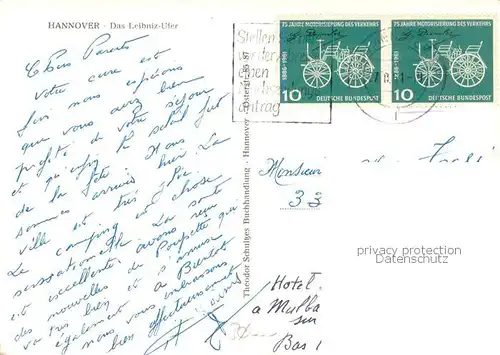 HANNOVER - Das Leibniz-Ufer
Chers Parents
votre cure est
fini nous espérons
que vous avez bien
profité de votre séjour
et qu' le soleil fut
de la fête. Nous
sommes arrivés hier. La
ville est très
Le camping est chose
sensationnelle. La santé
est excellente. avons reçu
des nouvelles de Poupette qui
va très bien et s'amuse
également. A Bientôt
nous vous embrassons
bien affectueusement
Theodor Schulzes Buchhandlung - Hannover - Osterstr. 85-87
Stellen
vor der
einen
antrag
75 JAHRE MOTORISIERUNG DES VERKEHRS
1886-1961
10
DEUTSCHE BUNDESPOST
75 JAHRE MOTORISIERUNG DES VERKEHRS
1886-1961
10
DEUTSCHE BUNDESPOST
Monsieur
33
privacy protection
Datenschutz
Hotel.
a Malba
sur
Bas